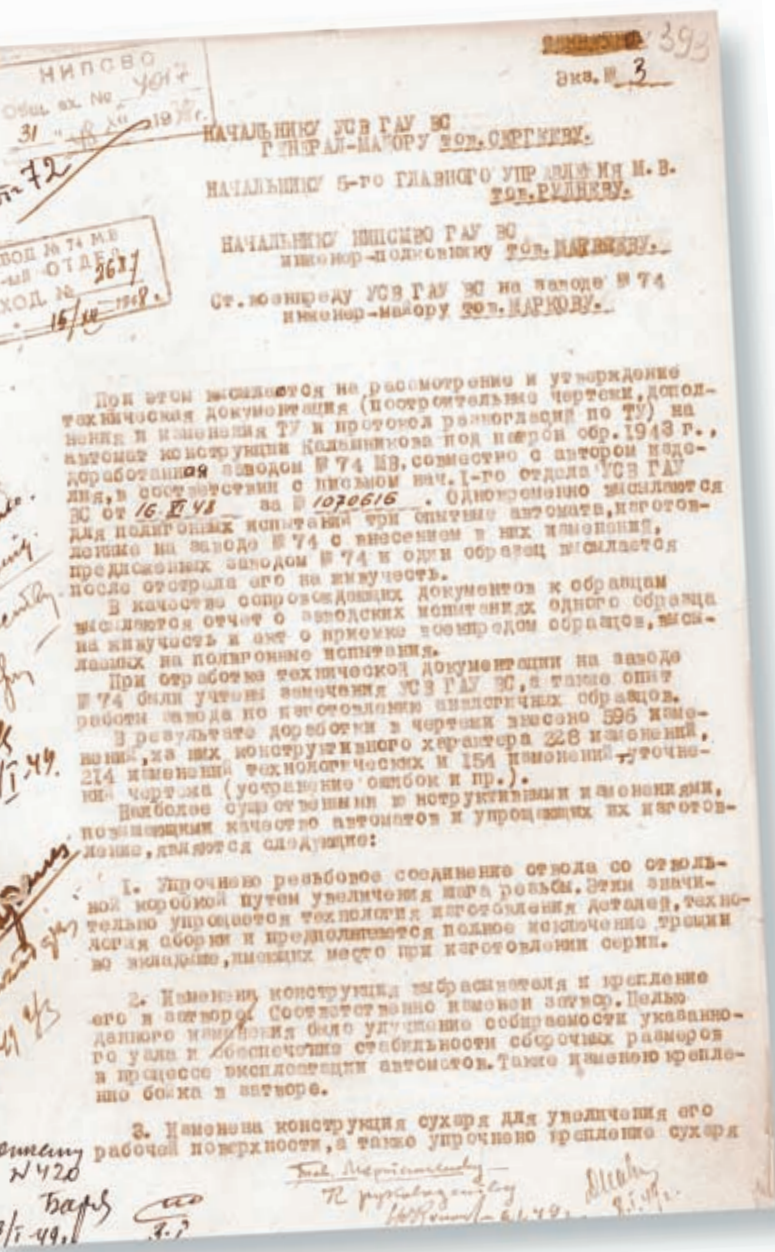 393
Экз.№ 3
НИПСВО
Общ. вх. No 4017
31 XII 19 г.
НАЧАЛЬНИКУ УСВ ГАУ ВС
ГЕНЕРАЛ-МАЙОРУ тов.СЕРГЕЕВУ.
НАЧАЛЬНИКУ 5-го ГЛАВНОГО УПРАВЛЕНИЯ М.В.
тов.РУДНЕВУ.
НАЧАЛЬНИКУ НИПСМВО ГАУ ВС
инженер-полковнику тов.
Ст.военпреду УСВ ГАУ ВС на заводе № 74
инженер-майору тов.МАРКОВУ.
ВОД № 74 М.В
ОТДЕЛ
ХОД. № 2687
15/XII 1948.
При этом высылаются на рассмотрение и утверждение
техническая документация (построительные чертежи,допол-
нения и изменения ТУ и протокол разногласий по ТУ) на
автомат конструкции Калашникова под патрон обр.1943 г.,
доработанная заводом № 74 МВ,совместно с автором изде-
лия,в соответствии с письмом нач.I-го отдела УСВ ГАУ
ВС от 16.XI 48 за № 1070616 . Одновременно высылаются
для полигонных испытаний три опытные автомата,изготов-
ленные на заводе № 74 с внесением в них изменений,
предложенных заводом № 74 и один образец высылается
после отстрела его на живучесть.
В качестве сопровождающих документов к образцам
высылаются отчет о заводских испытаниях одного образца
на живучесть и акт о приемке военпредом образцов,высы-
лаемых на полигонные испытания.
При отработке технической документации на заводе
№ 74 были учтены замечания УСВ ГАУ ВС,а также опыт
работы завода по изготовлению аналогичных образцов.
В результате доработки в чертежи внесено 596 изме-
нений,из них конструктивного характера 228 изменений,
214 изменений технологических и 154 изменений-уточне-
ний чертежа (устранение ошибок и пр.).
Наиболее существенными конструктивными изменениями,
повышающими качество автоматов и упрощающих их изготов-
ление,являются следующие:
I. Упрочнено резьбовое соединение ствола со стволь-
ной коробкой путем увеличения шага резьбы.Этим значи-
тельно упрощается технология изготовления деталей,техно-
логия сборки и предполагается полное исключение трещин
во вкладыше,имеющих место при изготовлении серии.
2. Изменена конструкция выбрасывателя и крепление
его в затворе. Соответственно изменен затвор.Целью
данного изменения было улучшение собираемости указанно-
го узла и обеспечение стабильности сборочных размеров
в процессе эксплоатации автоматов.Также изменено крепле-
ние бойка в затворе.
3. Изменена конструкция сухаря для увеличения его
рабочей поверхности,а также упрочнено крепление сухаря
К руководству